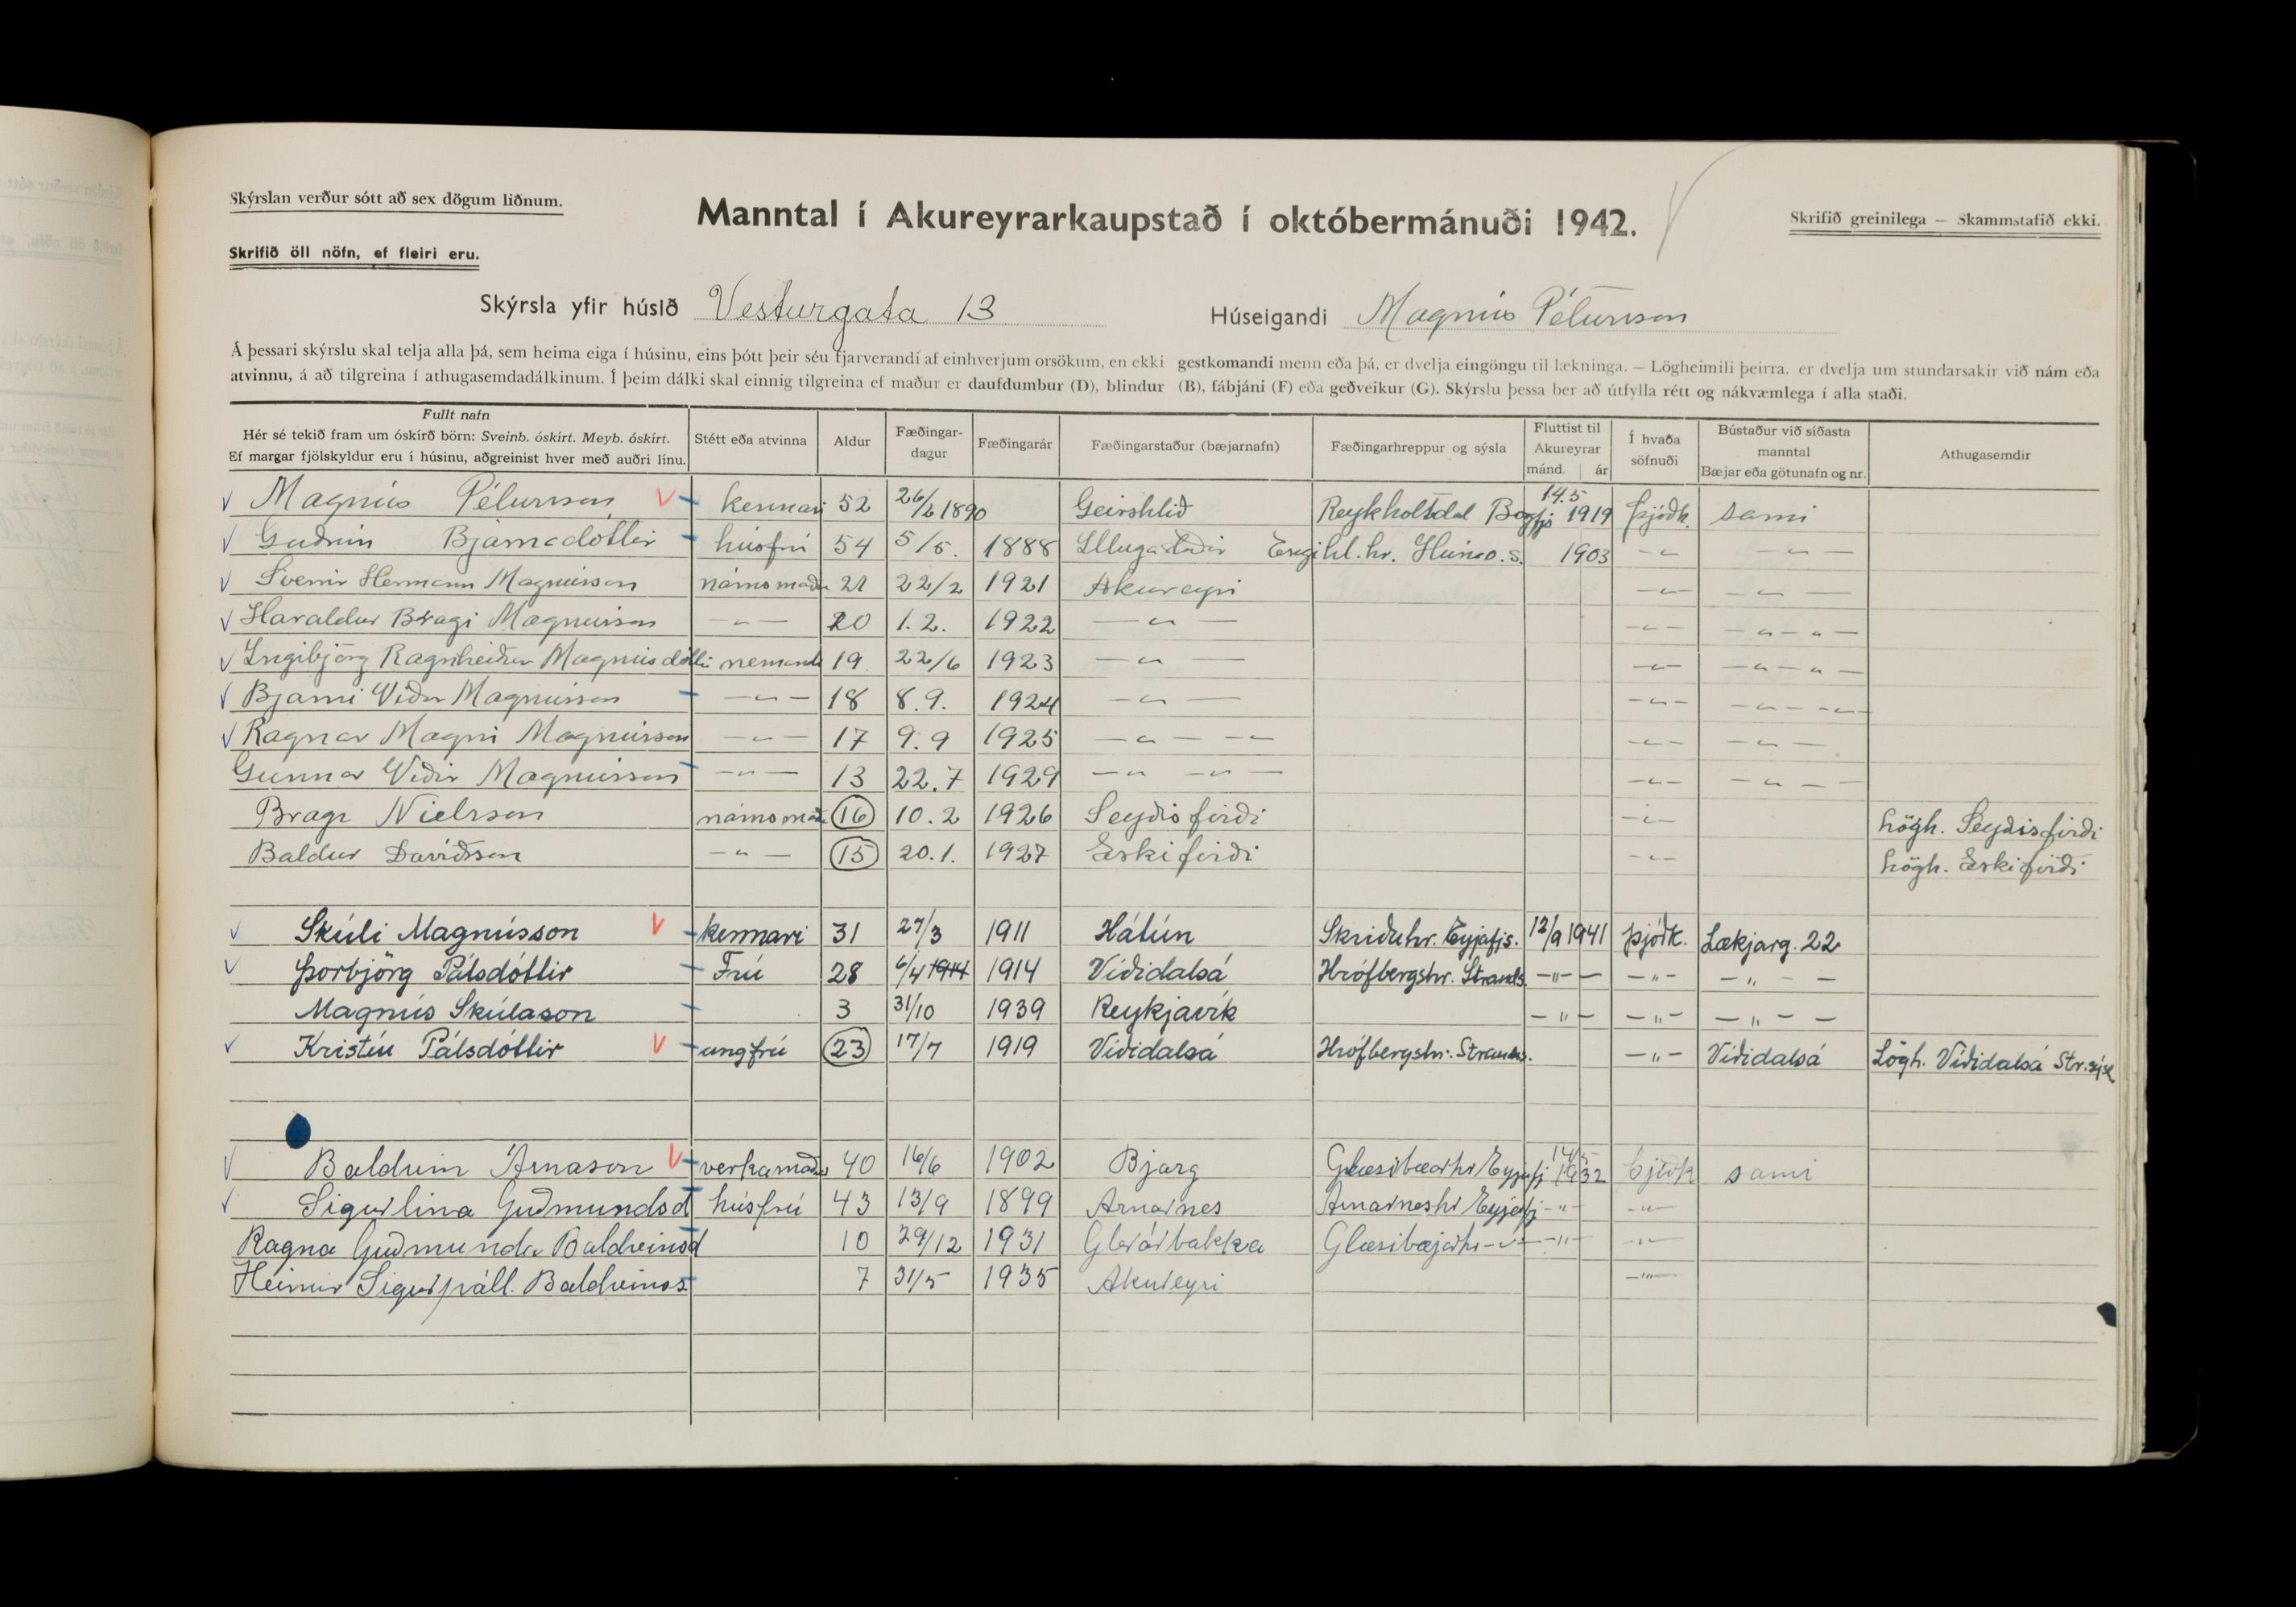 Skýrslan verður sótt að sex dögum liðnum.
Manntal í Akureyrarkaupstað í októbermánuði 1942.
Skrifið greinilega — Skammstafið ekki.
Skrifið öll nöfn, ef fleiri eru.
Skýrsla yfir húsið Vesturgata 13 Húseigandi Magnús Pétursson
Á þessari skýrslu skal telja alla þá, sem heima eiga í húsinu, eins þótt þeir séu fjarverandi af einhverjum orsökum, en ekki gestkomandi menn eða þá, er dvelja eingöngu til lækninga. — Lögheimili þeirra, er dvelja um stundarsakir við nám eða
atvinnu, á að tilgreina í athugasemdadálkinum. Í þeim dálki skal einnig tilgreina ef maður er daufdumbur (D), blindur (B), fábjáni (F) eða geðveikur (G). Skýrslu þessa ber að útfylla rétt og nákvæmlega í alla staði.
Fullt nafn
Hér sé tekið fram um óskírð börn: Sveinb. óskírt. Meyb. óskírt.
Ef margar fjölskyldur eru í húsinu, aðgreinist hver með auðri línu.
Stétt eða atvinna
Aldur
Fæðingar-
dagur
Fæðingarár
Fæðingarstaður (bæjarnafn)
Fæðingarhreppur og sýsla
Fluttist til
Akureyrar
mánd. ár
Í hvaða
söfnuði
Bústaður við síðasta
manntal
Bæjar eða götunafn og nr.
Athugasemdir
V Magnús Pétursson V kennari 52 26/2 1890 Geirshlíð Reykholtsdal Borgfjs 14.5 1919 Þjóðk. sami
V Guðrún Bjarnadóttir húsfrú 54 5/5. 1888 Illugastaðir Engihl.hr. Húnav.s. 1903 -"- -"-
V Sverrir Hermann Magnússon námsmaður 21 22/2 1921 Akureyri -"- -"-
V Haraldur Bragi Magnússon -"- 20 1.2. 1922 -"- -"- -"-"-
V Ingibjörg Ragnheiður Magnúsdóttir nemandi 19. 22/6 1923 -"- -"- -"-"-
V Bjarni Viðar Magnússon -"- 18 8.9. 1924 -"- -"- -"-"-
V Ragnar Magni Magnússon -"- 17 9.9 1925 -"-"- -"- -"-
Gunnar Víðir Magnússon -"- 13 22.7 1929 -"-"- -"- -"-
Bragi Níelsson námsmaður 16 10.2 1926 Seyðisfirði -"- Lögh. Seyðisfirði
Baldur Davíðsson -"- 15 20.1. 1927 Eskifirði -"- Lögh. Eskifirði
V Skúli Magnússon V kennari 31 27/3 1911 Hátún Skriðuhr. Eyjafjs. 12/9 1941 Þjóðk. Lækjarg. 22
V Þorbjörg Pálsdóttir Frú 28 6/4 1914 1914 Víðidalsá Hrófbergshr. Strands. -"- -"- -"-
Magnús Skúlason 3 31/10 1939 Reykjavík -"- -"- -"-
V Kristín Pálsdóttir V ungfrú 23 17/7 1919 Víðidalsá Hrófbergshr. Strands. -"- Víðidalsá Lögh. Víðidalsá Str.sýsl
V Baldvin Árnason V verkamaður 40 16/6 1902 Bjarg Glæsibæarhr Eyjafj 14/5 1932 Þjóðk sami
V Sigurlína Guðmundsd húsfrú 43 13/9 1899 Arnarnes Arnarneshr Eyjafj -"- -"-
Ragna Guðmunda Baldvinsd 10 29/12 1931 Glerárbakka Glæsibæjarhr -"- -"- -"-
Heimir Sigurpáll. Baldvinss 7 31/5 1935 Akureyri -"-